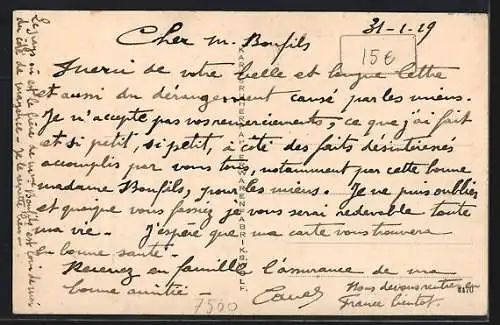 31-1-29
Cher M. Bonfils
15€
Merci de votre belle et longue lettre
et aussi du dérangement causé par les miens.
Je n'accepte pas vos remerciements, ce que j'ai fait
est si petit, si petit, à côté des faits désintéressés
accomplis par vous tous, notamment par cette bonne
madame Bonfils, pour les miens. Je ne puis oublier
et quoique vous fassiez je vous serai redevable toute
ma vie. J'espère que ma carte vous trouvera
en bonne santé.
Recevez en famille l'assurance de ma
bonne amitié
Nous devons rentrer en
France bientôt.
7500
Le pays où est le frère de Mme Bonfils est loin de